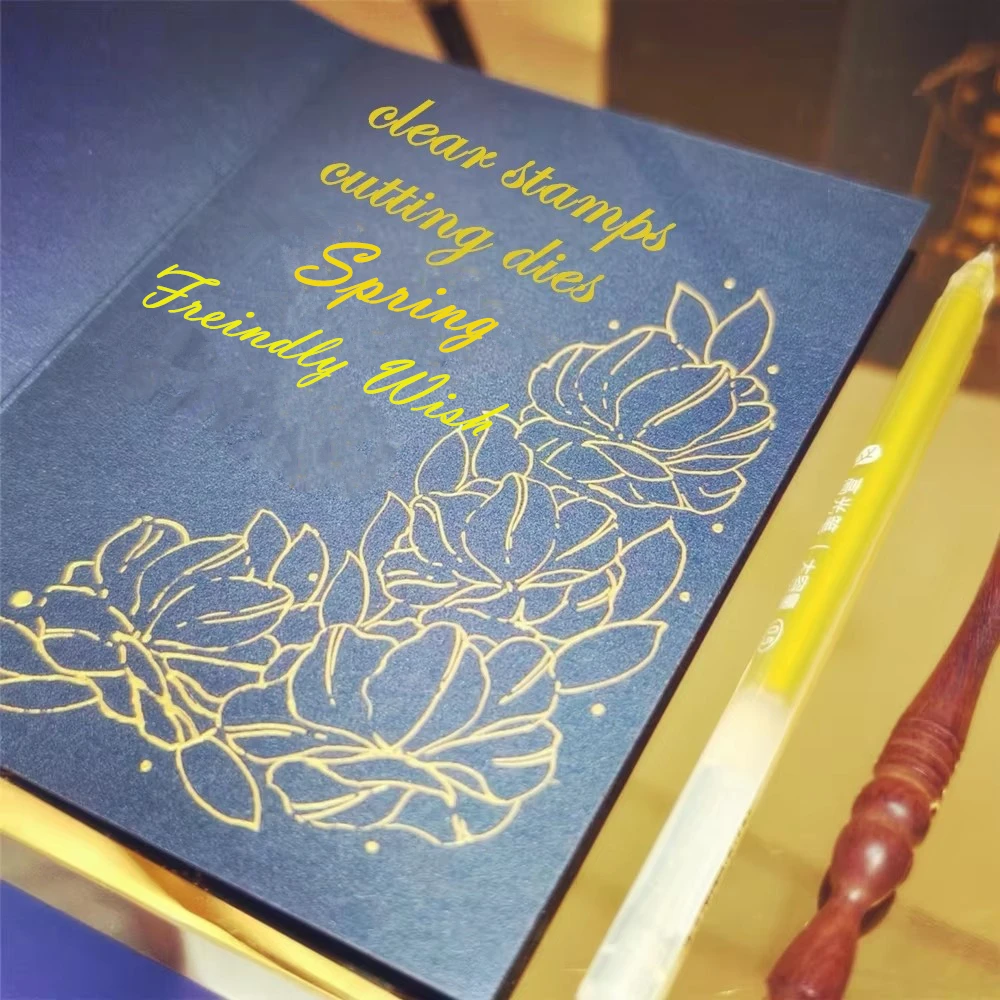 clear stamps
cutting dies
Spring
Freindly Wish
0.5